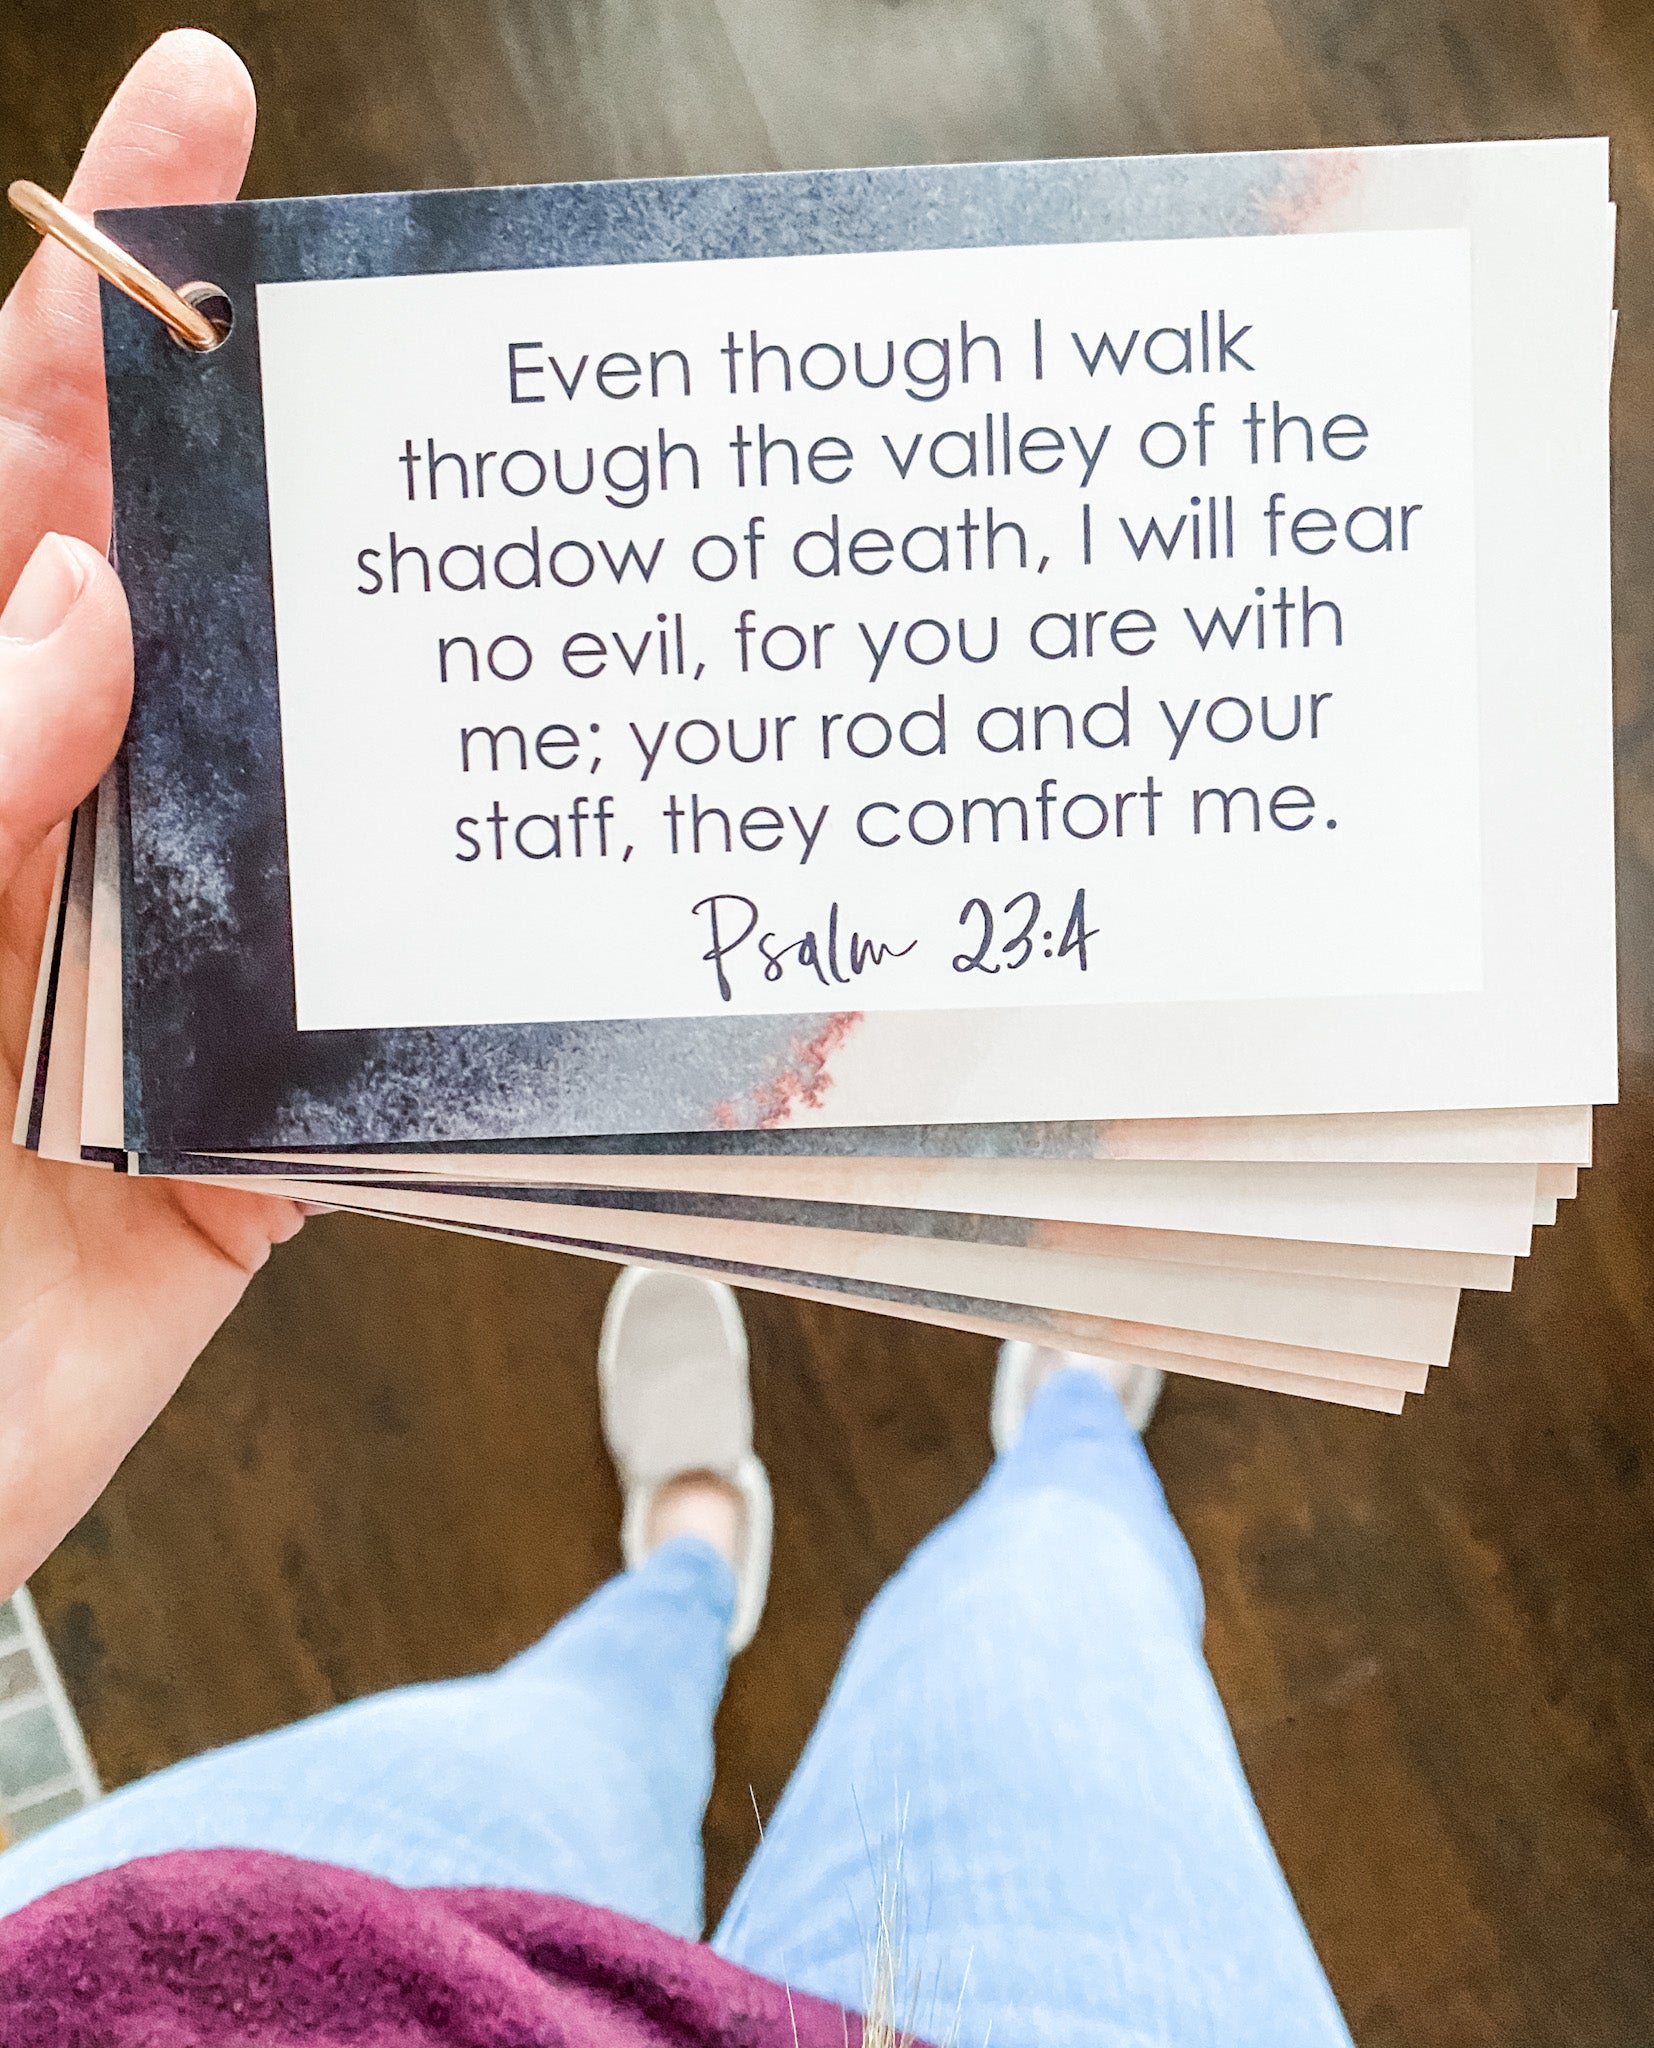 Even though I walk
through the valley of the
shadow of death, I will fear
no evil, for you are with
me; your rod and your
staff, they comfort me.
Psalm 23:4